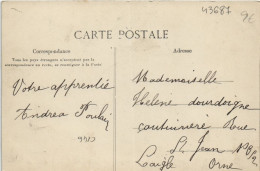 43687
9€
CARTE POSTALE
Correspondance
Adresse
Tous les pays étrangers n'acceptent pas la
correspondance au recto, se renseigner à la Poste
Votre apprentie
Andrea
Mademoiselle
Helene dourdoigne
couturière Rue
St Jean No
Laigle
Orne